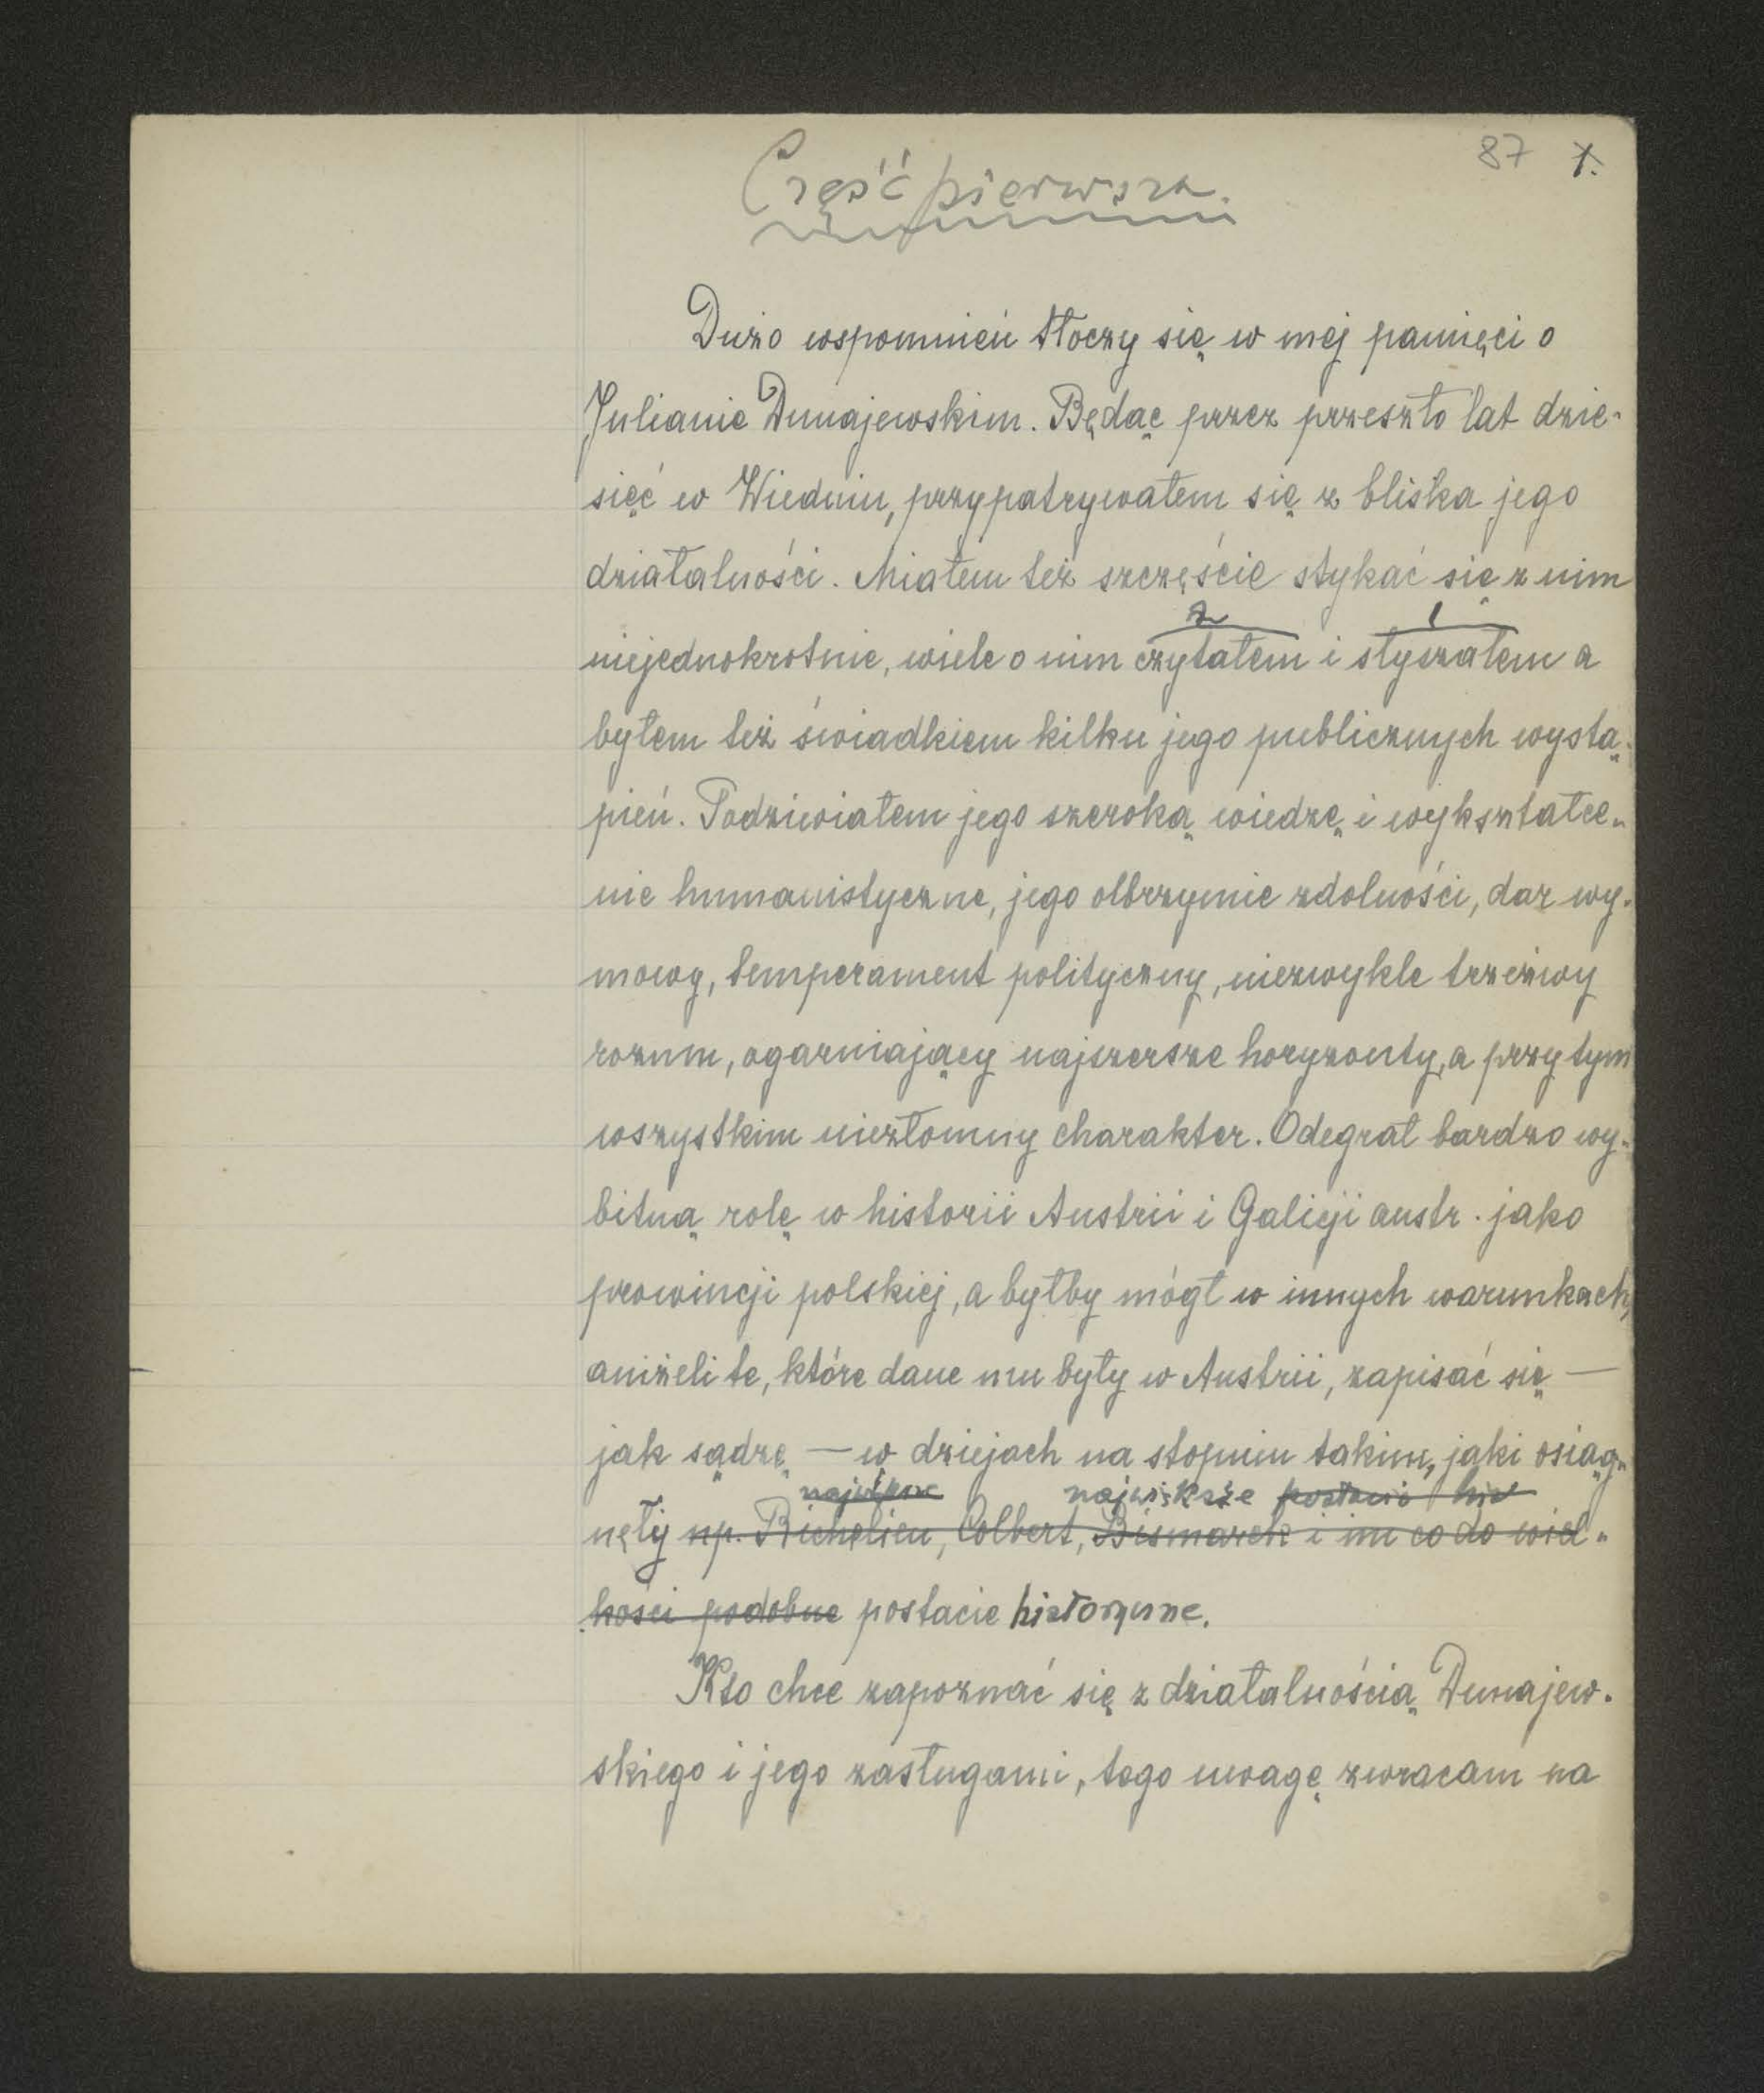 87 1.
Część pierwsza.
Dużo wspomnień tłoczy się w mej pamięci o
Julianie Dunajewskim. Będąc przez przeszło lat dzie-
sięć w Wiedniu, przypatrywałem się z bliska jego
działalności. Miałem też szczęście stykać się z nim
2 1
niejednokrotnie, wiele o nim czytałem i słyszałem a
byłem też świadkiem kilku jego publicznych wystą-
pień. Podziwiałem jego szeroką wiedzę i wykształce-
nie humanistyczne, jego olbrzymie zdolności, dar wy-
mowy, temperament polityczny, niezwykle trzeźwy
rozum, ogarniający najszersze horyzonty, a przy tym
wszystkim niezłomny charakter. Odegrał bardzo wy-
bitną rolę w historii Austrii i Galicji austr. jako
prowincji polskiej, a byłby mógł w innych warunkach,
aniżeli te, które dane mu były w Austrii, zapisać się —
jak sądzę — w dziejach na stopniu takim, jaki osiąg-
największe postacie
nęły np. Richelieu, Colbert, Bismarck i im co do wiel-
kości podobne postacie historyczne.
Kto chce zapoznać się z działalnością Dunajew-
skiego i jego zasługami, tego uwagę zwracam na